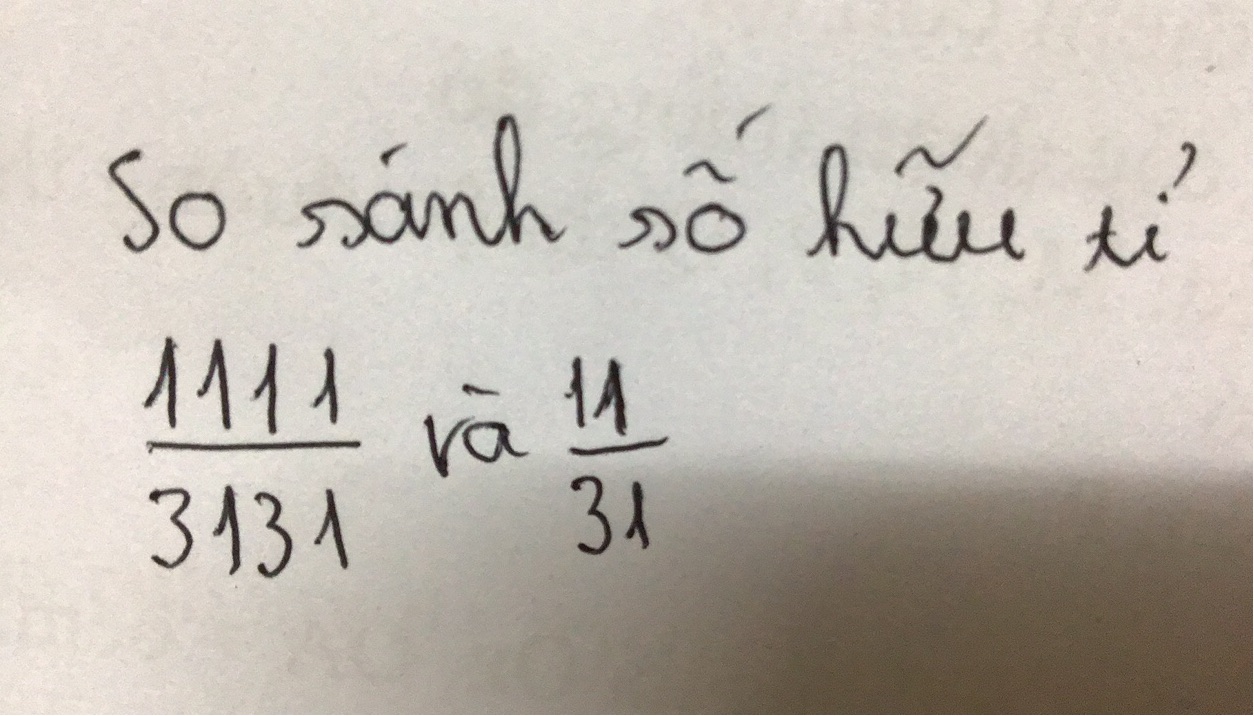 So sánh số hữu tỉ
1111/3131 và 11/31